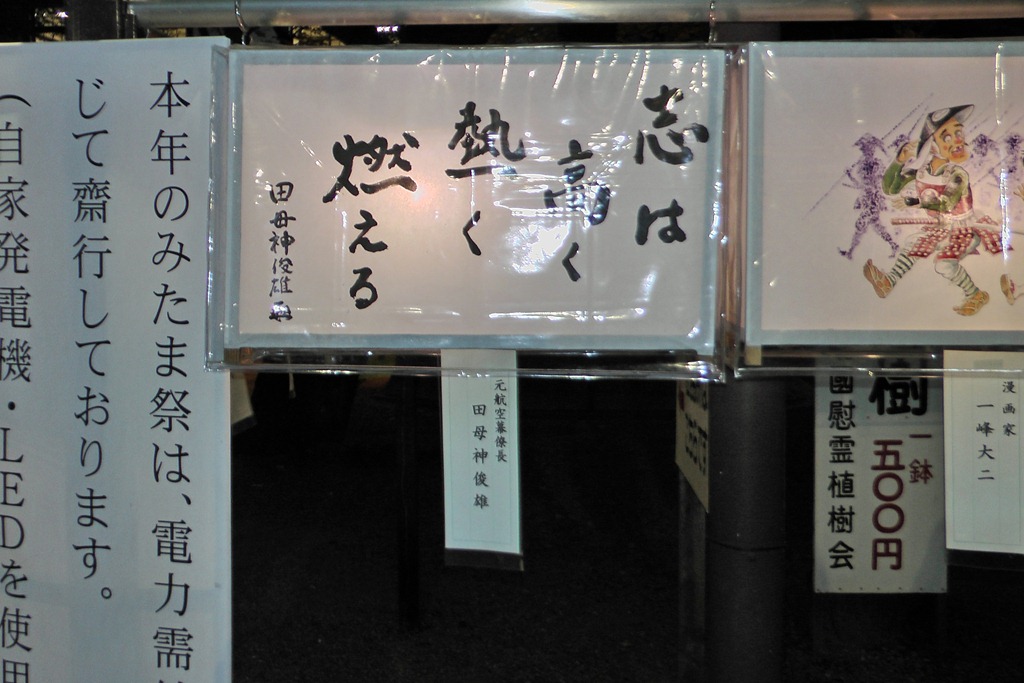 志は
高く
熱く
燃える
田母神俊雄
元航空幕僚長
田母神俊雄
本年のみたま祭は、電力需
じて齋行しております。
（自家発電機・LEDを使用
樹
一鉢
五〇〇円
國慰霊植樹会
漫画家
一峰大二